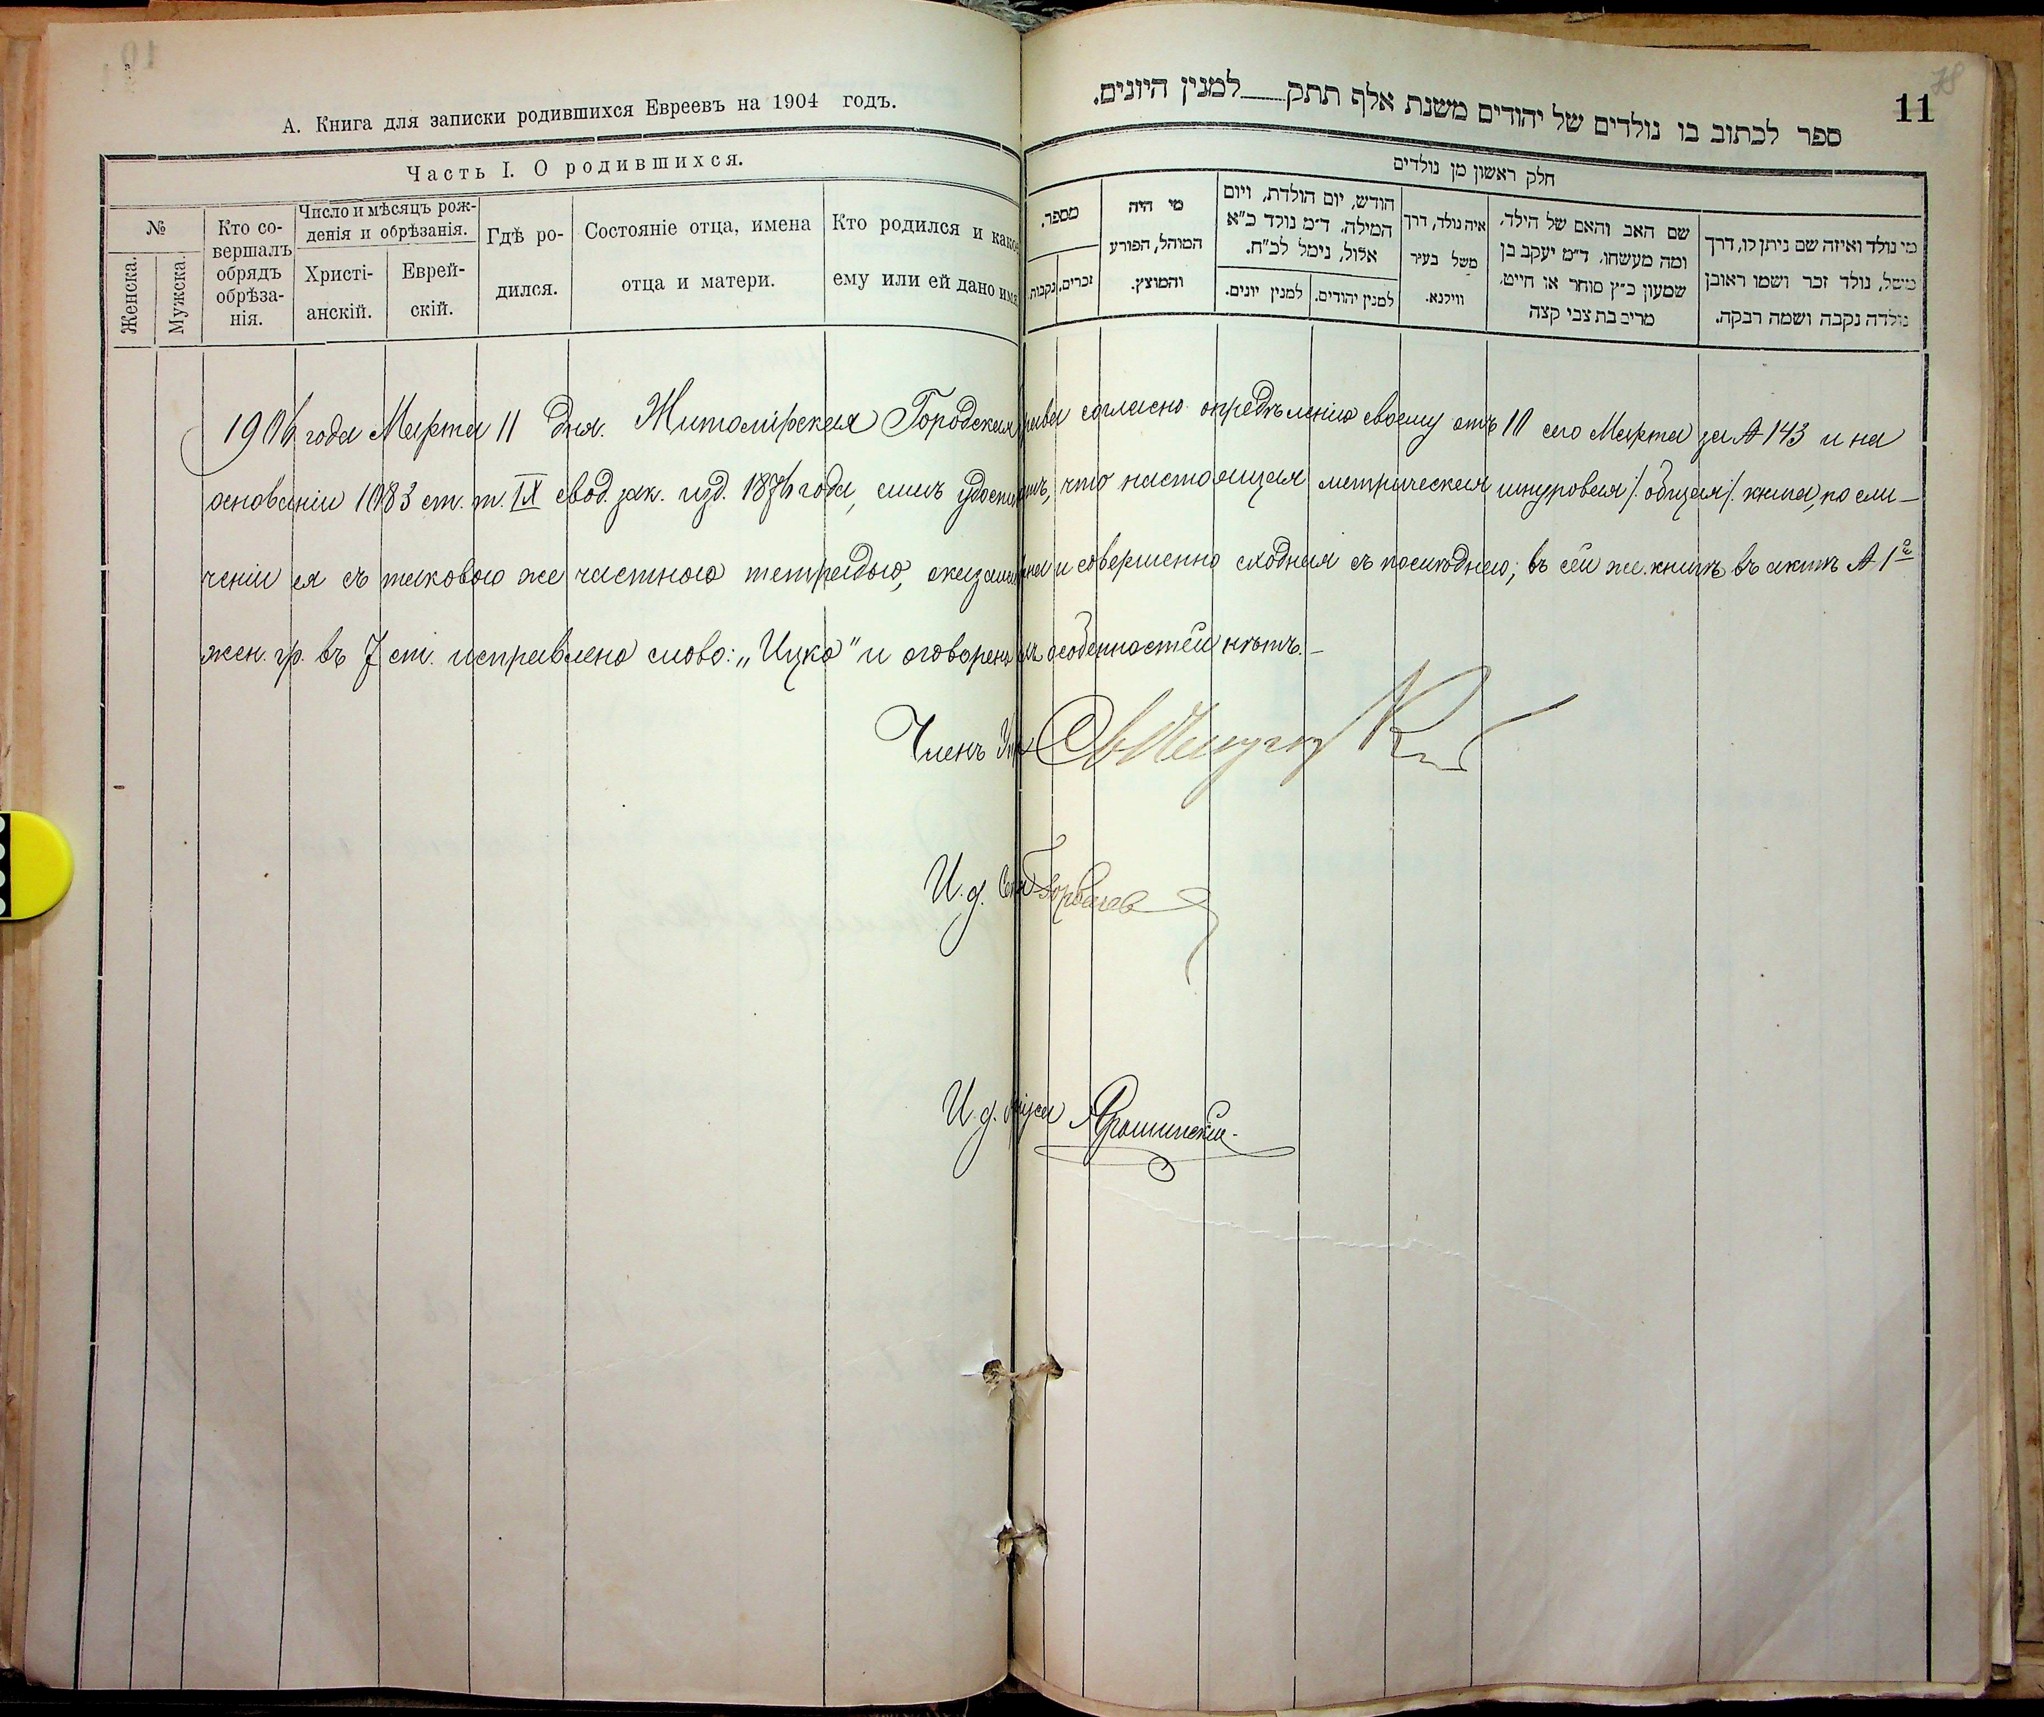 А. Книга для записки родившихся Евреевъ на 1904 годъ.
Часть I. О родившихся.
№
Женска.
Мужска.
Кто со-
вершалъ
обрядъ
обрѣза-
нія.
Число и мѣсяцъ рож-
денія и обрѣзанія.
Христі-
анскій.
Еврей-
скій.
Гдѣ ро-
дился.
Состояніе отца, имена
отца и матери.
Кто родился и какое
ему или ей дано имя
11
ספר לכתוב בו נולדים של יהודים משנת אלף תתק למנין היונים.
חלק ראשון מן נולדים
מי נולד ואיזה שם ניתן לו, דרך
משל, נולד זכר ושמו ראובן
נולדה נקבה ושמה רבקה.
שם האב והאם של הילד.
ומה מעשהו. ד״מ יעקב בן
שמעון כ״ץ סוחר או חייט,
מרים בת צבי קצה
איה נולד, דרך
משל בעיר
ווילנא.
הודש, יום הולדת, ויום
המילה. ד״מ נולד כ״א
אלול, נימל לכ״ח.
למנין יהודים.
למנין יונים.
מי היה
המוהל, הפורע
והמוצץ.
מספר.
זכרים.
נקבות.
1906 года Марта 11 дня. Житомірская Городская рава согласно опредѣленію своему отъ 10 сего Марта за № 143 и на
основаніи 1083 ст. т. IX свод. зак. изд. 1876 года, симъ удост что настоящая метрическая шнуровая /общая/ книга, по сли-
ченіи ея съ таковою же частною тетрадью, оказала и совершенно сходная съ послѣднею; въ сей же книгѣ въ актѣ № 1й
жен. гр. въ 7 ст. исправлено слово: „Ицко" и оговорен особенностей нѣтъ.-
Членъ Упр
И. д. Сек
И. д. Ярошинскій.